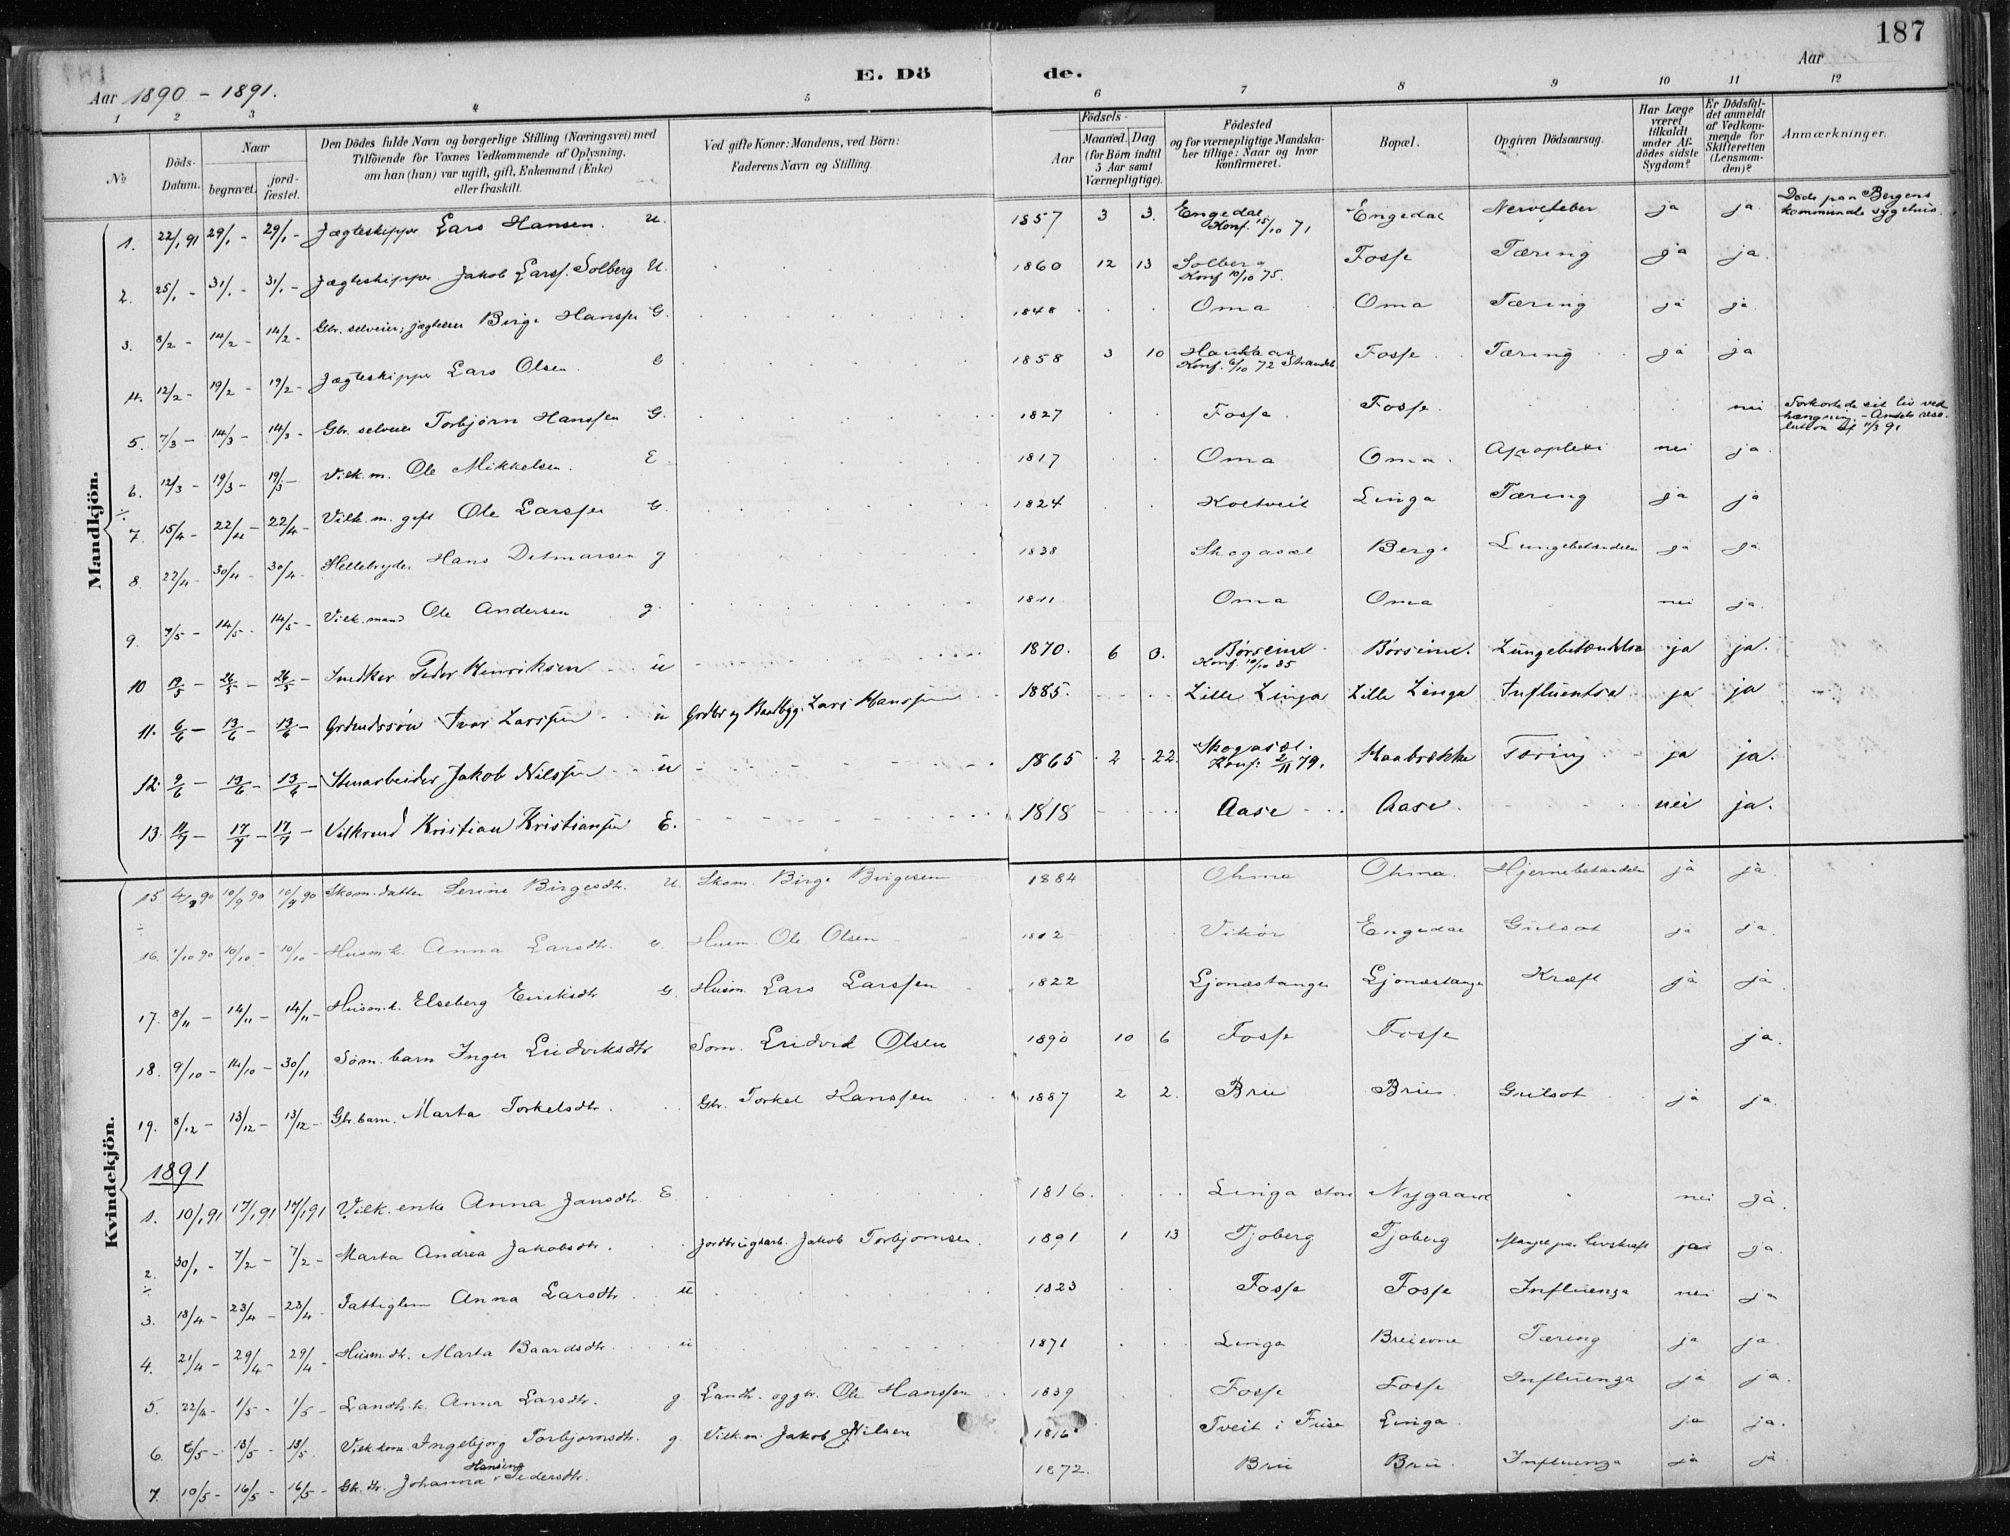 187
E. Dö de.
Aar 1890 - 1891.
Aar
1 2 3 4 5 6 7 8 9 10 11 12
№
Döds-Datum.
Naar
begravet. jord-fæstet.
Den Dödes fulde Navn og borgerlige Stilling (Næringsvei) med Tilföiende for Voxnes Vedkommende af Oplysning, om han (hun) var ugift, gift, Enkemand (Enke) eller fraskilt.
Ved gifte Koner: Mandens, ved Börn: Faderens Navn og Stilling.
Födsels-
Aar
Maaned. Dag
(for Börn indtil 5 Aar samt Værnepligtige).
Födested og for værnepligtige Mandska-ber tillige: Naar og hvor konfirmeret.
Bopæl.
Opgiven Dödsaarsag.
Har Læge været tilkaldt under Af-dödes sidste Sygdom?
Er Dödsfal-det anmeldt af Vedkom-mende for Skifteretten (Lensman-den)?
Anmærkninger.
Mandkjön.
1. 22/1 91 29/1 - 29/1 - Jægteskipper Lars Hansen. U. 1857 3 3. Engedal Konf. 15/10 71 Engedal Nervefeber ja ja. Döde paa Bergens kommunale sygehus.
2. 25/1 - 31/1 - 31/1 - Jægteskipper Jakob Larss. Solberg U. 1860 12 13 Solberg Konf 10/10 75. Fosse Tæring ja ja.
3. 8/2 - 14/2 - 14/2 - Gbr. selveier, jægteeier Birge Hansen G. 1848 Oma Oma Tæring ja ja.
4. 12/2 - 19/2 - 19/2 - Jægteskipper Lars Olsen. G 1858 3 10 Haukaas Konf. 6/10 72 Strandeb. Fosse Tæring ja ja
5. 7/3 - 14/3 - 14/3 - Gbr. selveier Torbjørn Hanssen G. 1827 Fosse Fosse. nei Forkortede sit liv ved hængning - Amtets reso-lution af 11/3 91
6. 12/3 - 19/3 - 19/3 - Vilk. m. Ole Mikkelsen. E 1817 Oma Oma. Apoplexi nei ja.
7. 15/4 - 22/4 - 22/4 - Vilk. m. gift Ole Larssen G. 1824 Holtveit Linga Tæring ja ja
8. 22/4 - 30/4 - 30/4 - Hellebryder Hans Detmarsen g 1838 Skogasæl Berge Lungebetændelse ja ja.
9. 7/5 - 14/5 - 14/5 - Vilk. mand Ole Andersen g. 1811 Oma Oma nei ja.
10 19/5 - 26/5 - 26/5 - Snedker Peder Henriksen u 1870. 6 3. Børseim Konf 10/10 85 Børseim. Lungebetændelse ja ja.
11. 6/6 - 13/6 - 13/6 - Grdmdssøn Ivar Larssen u Grdbr og Baadbyg. Lars Hanssen 1885. Lille Linga Lille Linga Influentsa ja ja
12. 9/6 - 13/6 - 13/6 - Stenarbeider Jakob Nilssen u 1865 2 22. Skogasæl. Konf: 2/11 79. Maabrække Tæring ja ja.
13. 11/7 - 17/7 - 17/7 - Vilkrmd Kristian Kristiansen E. 1818 Aase Aase. nei ja.
Kvindekjön.
15 4/9 90 10/9 90 10/9 90 Skom. datter Serine Birgesdtr. U. Skom. Birge Birgesen 1884 Ohma Ohma. Hjernebetændelse ja ja.
16. 1/10 90 10/10 - 10/10 - Husm.k. Anna Larsdtr. G. Husm. Ole Olsen 1802 Vikør Engedal Gulsot ja ja.
17. 8/11 - 14/11 - 14/11 - Husm.k. Elseberg Eiriksdtr G. Husm. Lars Larssen 1822 Ljonæstangen Ljonæstangen Kræft ja ja.
18. 9/10 - 14/10 - 30/11 Søm. barn Inger Ludviksdtr Søm. Ludvik Olsen 1890 10 6 Fosse Fosse ja.
19. 8/12 - 13/12 - 13/12 - Gbr. barn. Marta Torkelsdtr. Gbr. Torkel Hanssen 1887 2 2. Bru Bru. Gulsot ja ja.
1891
1. 10/1 91 17/1 91 17/1 91 Vilk. enke Anna Jansdtr. E. 1816. Linga store Nygaard nei ja.
2. 30/1 - 7/2 - 7/2 - Marta Andrea Jakobsdtr. Jordbrugsarb. Jakob Torbjørnsen. 1891 1 13 Tjoberg Tjoberg Mangel paa livskraft ja.
3. 18/4 - 23/4 - 23/4 - Fattiglem Anna Larsdtr. u 1823 Fosse Fosse Influenza nei ja
4. 21/4 - 29/4 - 29/4 - Husm. dtr. Marta Baardsdtr. u 1871 Linga Tæring ja ja.
5. 22/4 - 1/5 - 1/5 - Landh.k. Anna Larsdtr. g Landh. og gbr. Ole Hanssen 1839 Fosse Fosse Influenza ja ja.
6. 6/5 - 13/5 - 13/5. Vilk. kone Ingebjorg Torbjørnsdtr. g. Vilk. m. Jakob Nilsen 1816 Tveit i Fuse Linga. ja ja.
7. 10/5 - 16/5 - 16/5 - Gbr. dtr. Johanna Hansine Pedersdtr. 1872. Bru Bru. Influenza ja ja.